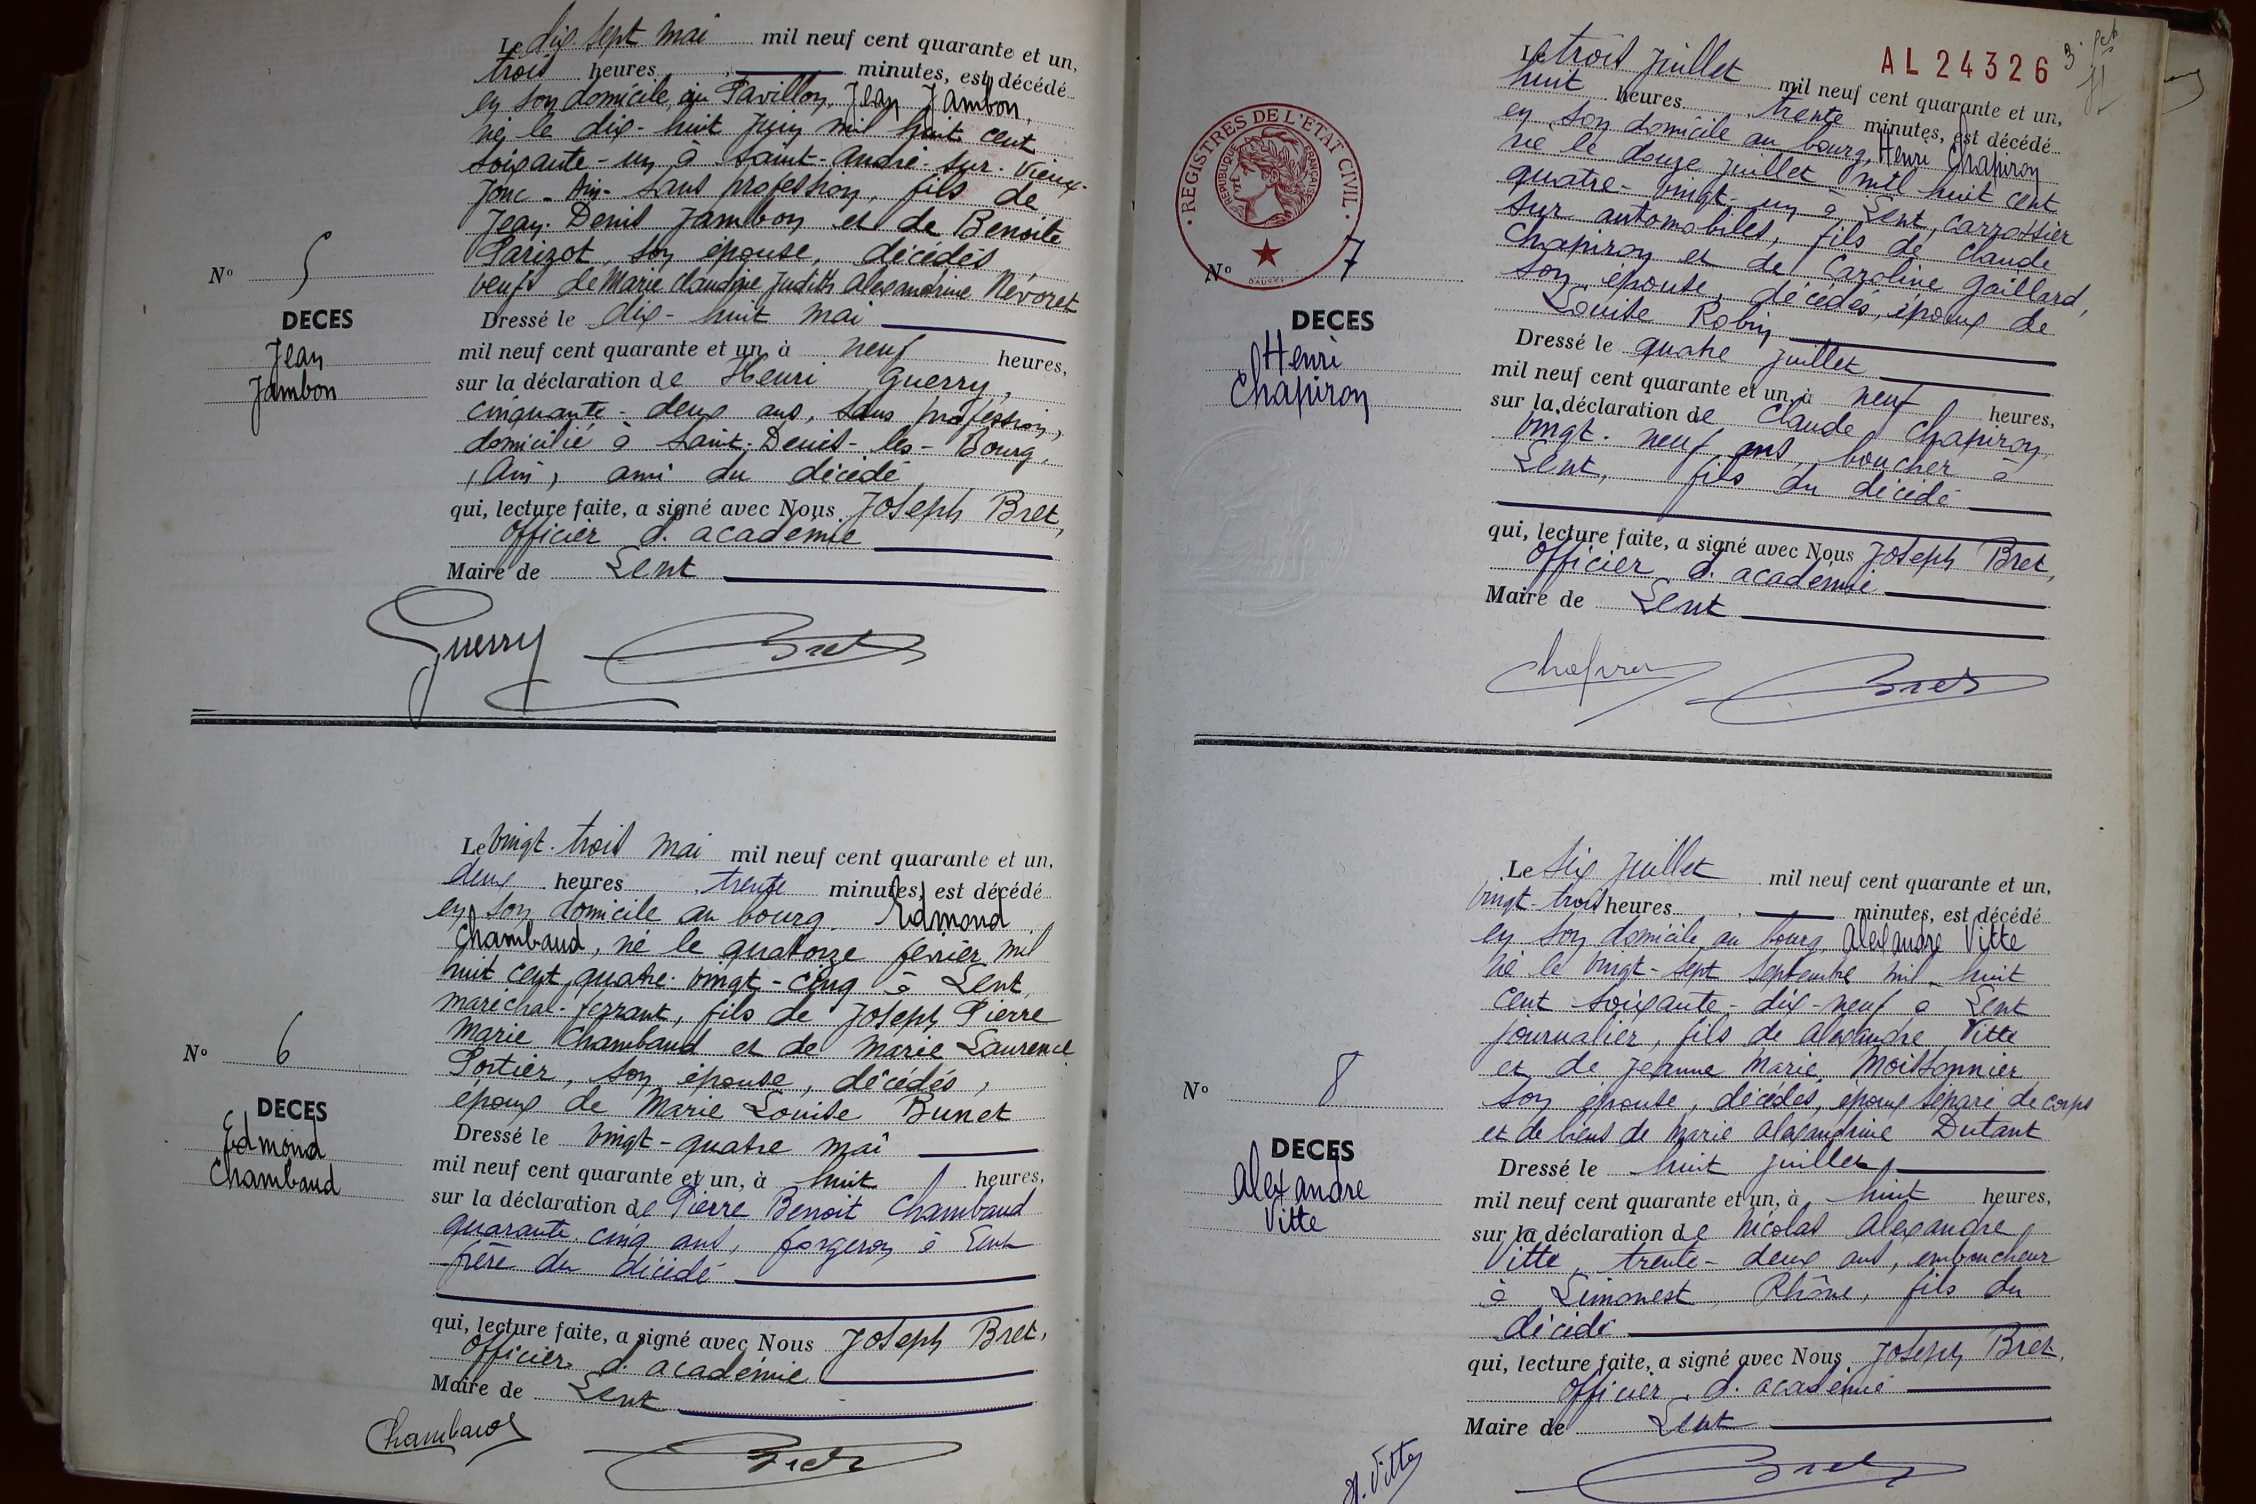 Le dix-sept mai mil neuf cent quarante et un,
trois heures, minutes, est décédé
en son domicile, au Pavillon, Jean Jambon,
né le dix-huit juin mil huit cent
soixante-un à Saint-André-sur-Vieux-
Jonc-Ain-sans profession, fils de
Jean-Denis Jambon et de Benoite
Parizot, son épouse, décédés
veuf de Marie Claudine Judith Alexandrine Névoret
N° 5
DECES
Jean
Jambon
Dressé le dix-huit mai
mil neuf cent quarante et un, à neuf heures,
sur la déclaration de Henri Guerry,
cinquante-deux ans, sans profession,
domicilié à Saint-Denis-les-Bourg,
(Ain), ami du décédé
qui, lecture faite, a signé avec Nous Joseph Bret,
officier d'académie
Maire de Lent
Guerry Bret
Le vingt-trois mai mil neuf cent quarante et un,
deux heures trente minutes, est décédé
en son domicile au bourg Edmond
Chambaud, né le quatorze février mil
huit cent quatre-vingt-cinq à Lent,
maréchal-ferrant, fils de Joseph Pierre
Marie Chambaud et de Marie Laurence
Portier, son épouse, décédés,
époux de Marie Louise Bunet
N° 6
DECES
Edmond
Chambaud
Dressé le vingt-quatre mai
mil neuf cent quarante et un, à huit heures,
sur la déclaration de Pierre Benoit Chambaud
quarante cinq ans, forgeron à Lent
frère du décédé
qui, lecture faite, a signé avec Nous Joseph Bret,
officier d'académie
Maire de Lent
Chambaud Bret
AL 24326
REGISTRES DE L'ETAT CIVIL
REPUBLIQUE FRANÇAISE
Le trois juillet mil neuf cent quarante et un,
huit heures trente minutes, est décédé
en son domicile au bourg, Henri Chapiron
né le douze juillet mil huit cent
quatre-vingt-un à Lent, carrossier
sur automobiles, fils de Claude
Chapiron et de Caroline Gaillard,
son épouse, décédés, époux de
Louise Robin
N° 7
DECES
Henri
Chapiron
Dressé le quatre juillet
mil neuf cent quarante et un, à neuf heures,
sur la déclaration de Claude Chapiron
vingt-neuf ans, boucher à
Lent, fils du décédé
qui, lecture faite, a signé avec Nous Joseph Bret,
officier d'académie
Maire de Lent
Chapiron Bret
Le six juillet mil neuf cent quarante et un,
vingt-trois heures, minutes, est décédé
en son domicile au bourg Alexandre Vitte
né le vingt-sept septembre mil huit
cent soixante-dix-neuf à Lent
journalier, fils de Alexandre Vitte
et de Jeanne Marie Moissonnier
son épouse, décédés, époux séparé de corps
et de biens de Marie Alexandrine Dutant
N° 8
DECES
Alexandre
Vitte
Dressé le huit juillet
mil neuf cent quarante et un, à huit heures,
sur la déclaration de Nicolas Alexandre
Vitte, trente-deux ans, emboucheur
à Limonest, Rhône, fils du
décédé
qui, lecture faite, a signé avec Nous Joseph Bret,
officier d'académie
Maire de Lent
Vitte Bret